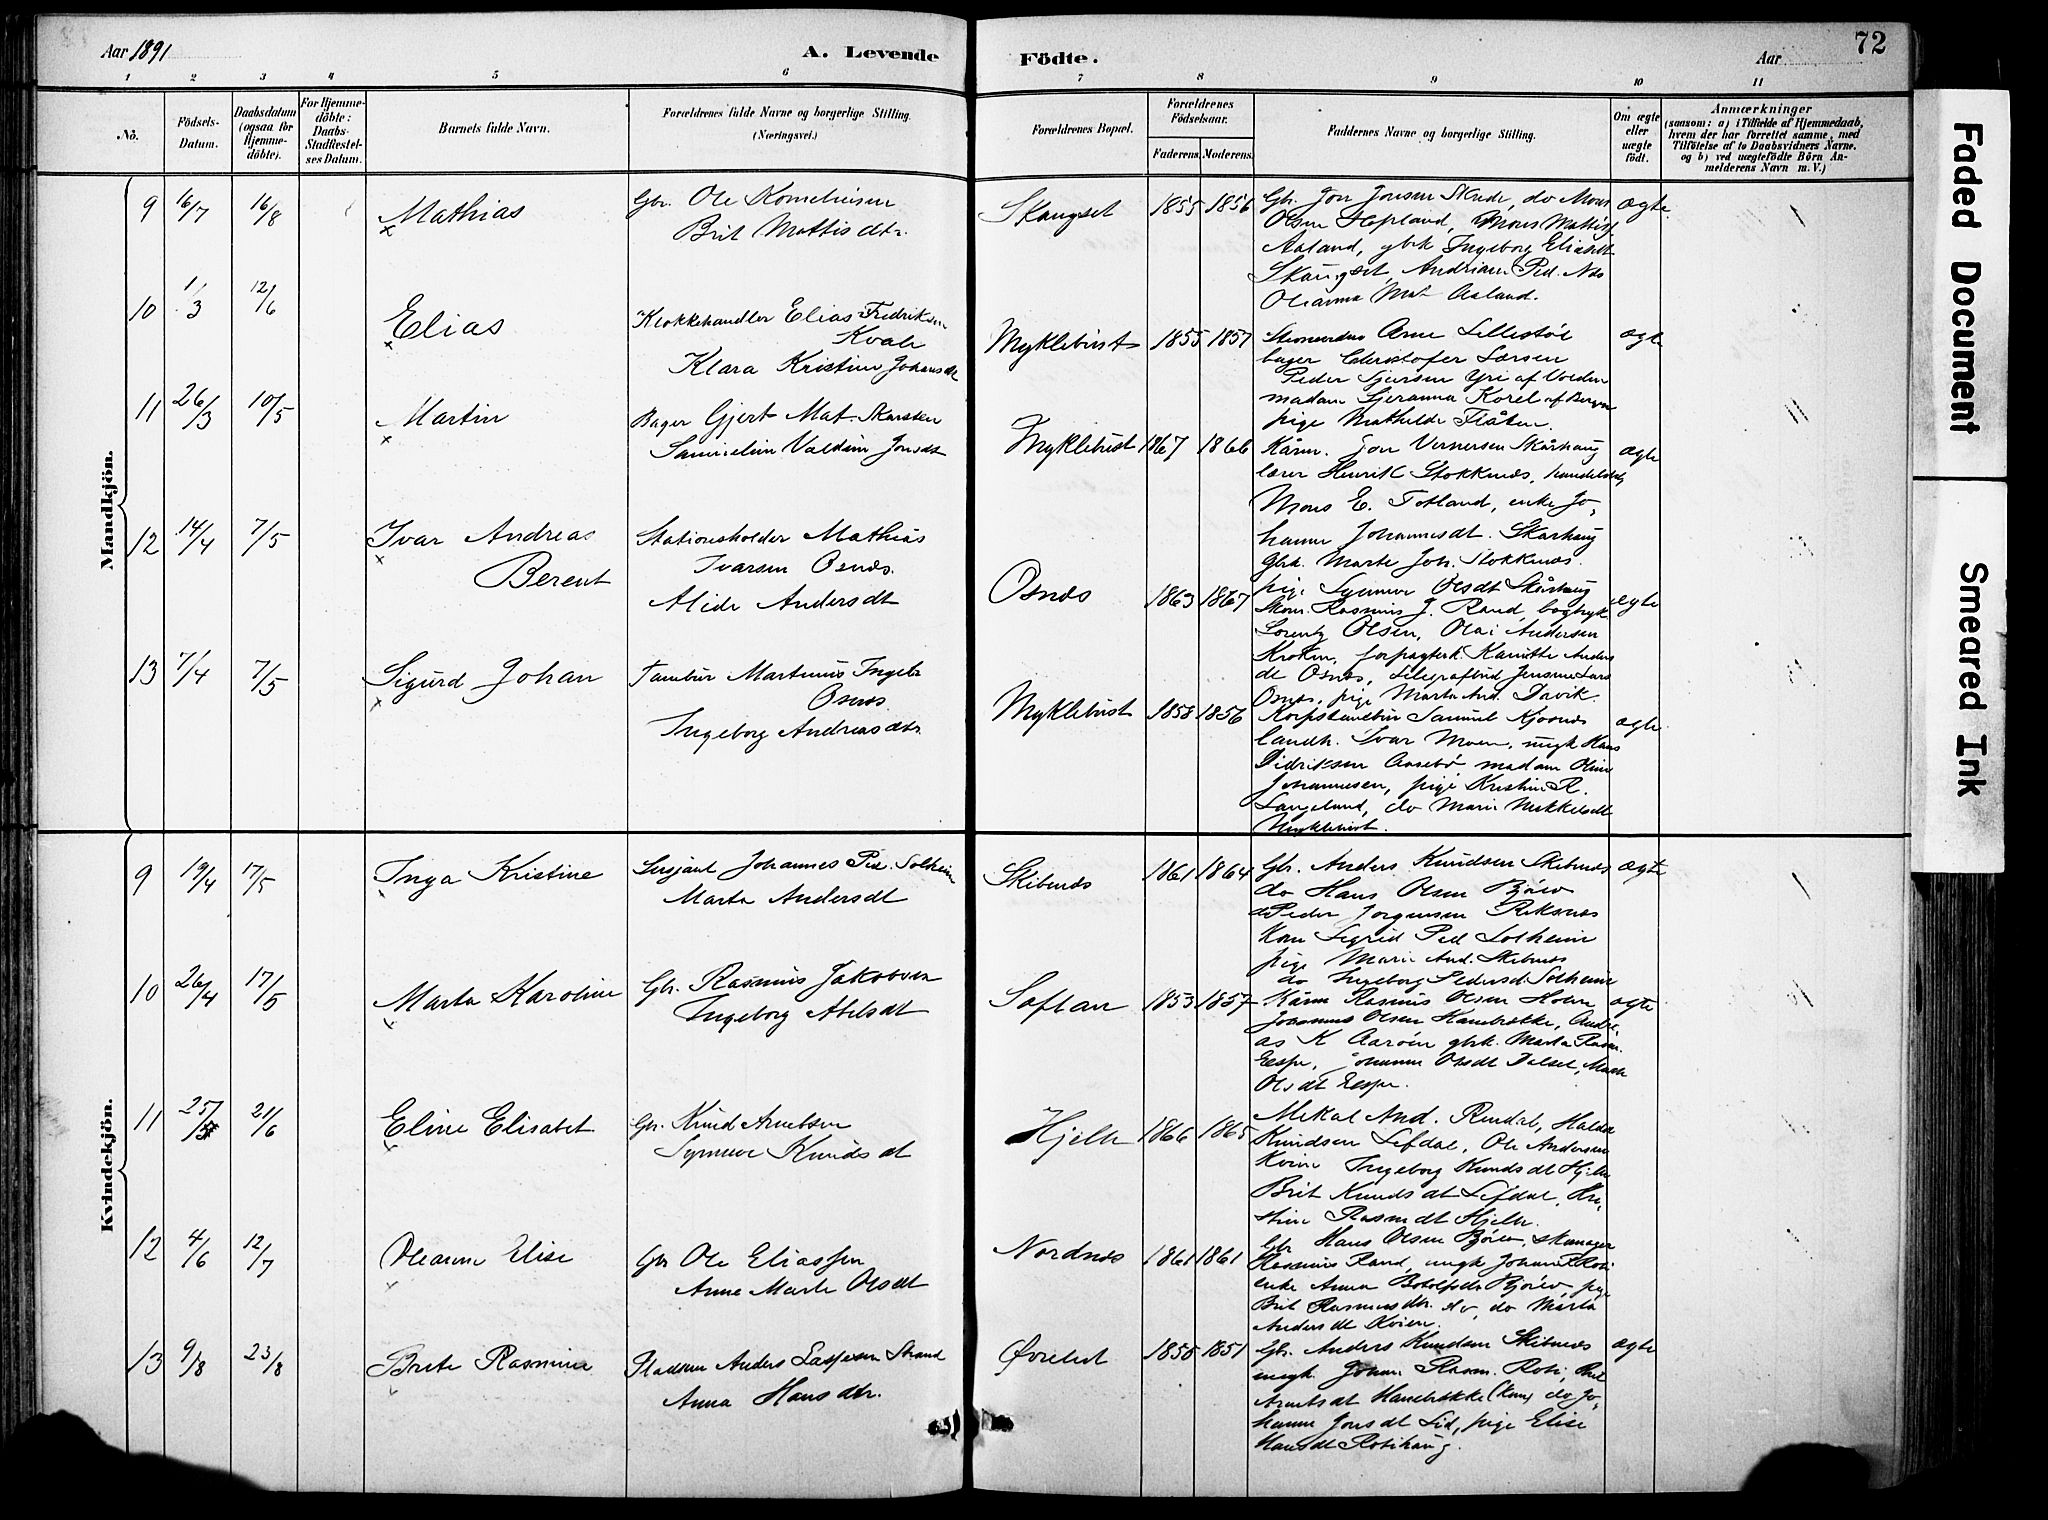 Aar 1891
A. Levende
Födte.
Aar
72
1 2 3 4 5 6 7 8 9 10 11
No.
Födsels-
Datum.
Daabsdatum
(ogsaa for
Hjemme-
döbte).
For Hjemme-
döbte:
Daabs-
Stadfestel-
ses Datum.
Barnets fulde Navn.
Forældrenes fulde Navne og borgerlige Stilling.
(Næringsvei.)
Forældrenes Bopæl.
Forældrenes
Födselsaar.
Faderens.
Moderens.
Faddernes Navne og borgerlige Stilling.
Om ægte
eller
uægte
födt.
Anmærkninger
(saasom: a) i Tilfælde af Hjemmedaab,
hvem der har forrettet samme, med
Tilföielse af to Daabsvidners Navne.
og b) ved uægtefödte Börn An-
melderens Navn m. V.)
Mandkjön.
9 16/7 16/8 Mathias
Gbr. Ole Korneliusen
Brit Mattisdtr.
Skaugset 1855 1856
Gbr. Jon Jonsen Skede, do Mons
Olsen Hopland, Mons Mattis
Aaland, gbrk Ingeborg Eliasdt
Skaugset, Andriane Ped. Nos
Oleanna Mat Aaland.
ægte
10 1/3 12/6 Elias
Klokkehandler Elias Fredriksen
Kvale
Klara Kristine Johansdt
Myklebust 1855 1857
Arne Lillestöl
bager Christofer Larsen
Peder Sjursen Yri af Volden
madam Gjeranna Korel af Bergen
pige Mathilde Flåten.
ægte
11 26/3 10/5 Martin
Bager Gjert Mat. Skarsten
Samueline Valdine Jonsdt
Myklebust 1867 1866
Kårm. Jon Vernersen Skårhaug
lærer Henrik Stokknes, handelsb
Mons E. Totland, enke Jo,
hanne Johannesdt. Skårhaug
Gbrk. Marte Joh. Stokknes.
pige Synneve Olsdt Skårhaug
ægte
12 14/4 7/5 Ivar Andreas
Berent
Stationsholder Mathias
Ivarsen Osnes.
Alide Andersdt
Osnes 1863 1867
Skom. Rasmus J. Rand, bogtryk
Lorentz Olsen, Olai Andersen
Kroken, forpagterk. Kanutte Anders
dt Osnes, telegrafbud Jensine Lars
Osnes, pige Marta And. Davik.
ægte
13 7/4 7/5 Sigurd Johan
Tambur Martinus Ingebr
Osnes.
Ingeborg Andreasdtr.
Myklebust 1858 1856
Korpstambur Samuel Kjosnes
landh. Ivar Moen, ungk Hans
Didriksen Aasebø madam Oline
Johannesen, pige Kristine R.
Langeland, do Marie Mikkelsdt
Myklebust.
ægte
Kvindekjön.
9 19/4 17/5 Inga Kristine
Sersjant Johannes Ped. Solheim
Marta Andersdt
Skibenes 1861 1864
Gbr. Anders Knudsen Skibenes
do Hans Olsen Bjölo
do Peder Jörgensen Reksnes
Kone Sigrid Ped Solheim
pige Marie And. Skibenes
do Ingeborg Pedersdt Solheim
ægte
10 26/4 17/5 Marta Karoline
Gbr. Rasmus Jakobsen
Ingeborg Abelsdt
Soflan 1853 1857
Kårm Rasmus Olsen Holen
Johannes Olsen Hanebrekke, Andre,
as K Aaröen gbrk. Marta Rasm.
Eespe, Johanne Olsdt Dalset, Marte
Olsdt Eespe.
ægte
11 25/5 21/6 Eline Elisabet
Gbr. Knud Arnetsen
Synneve Knudsdt
Hjelle 1866 1865
Mikal And. Rendal, Haldor
Knudsen Lefdal, Ole Andersen
Kvien Ingeborg Knudsdt Hjelle
Brit Knudsdt Lefdal, Kri
stine Rasmdt Hjelle.
12 4/6 12/7 Oleanne Elise
Gbr Ole Eliassen
Anne Marte Olsdt
Nordnes 1861 1861
Gbr Hans Olsen Bjölo, skomager
Rasmus Rand, ungk Johan R Roti
enke Anna Botolfsdt Bjölo, pige
Brit Rasmusdtr. do, do Marta
Andersdt Kvien.
13 9/8 23/8 Brite Rasmine
Pladsm Anders Lassesen Strand
Anna Hansdtr.
Øvelid 1858 1851
Gbr. Anders Knudsen Skibenes
ungk. Johan Rasm. Roti, Brit
Arnetsdt Hanebrekke (kone) do Jo,
hanne Jonsdt Lid, pige Elise
Hansdt Rotihaug.
ægte
Faded Document
Smeared Ink